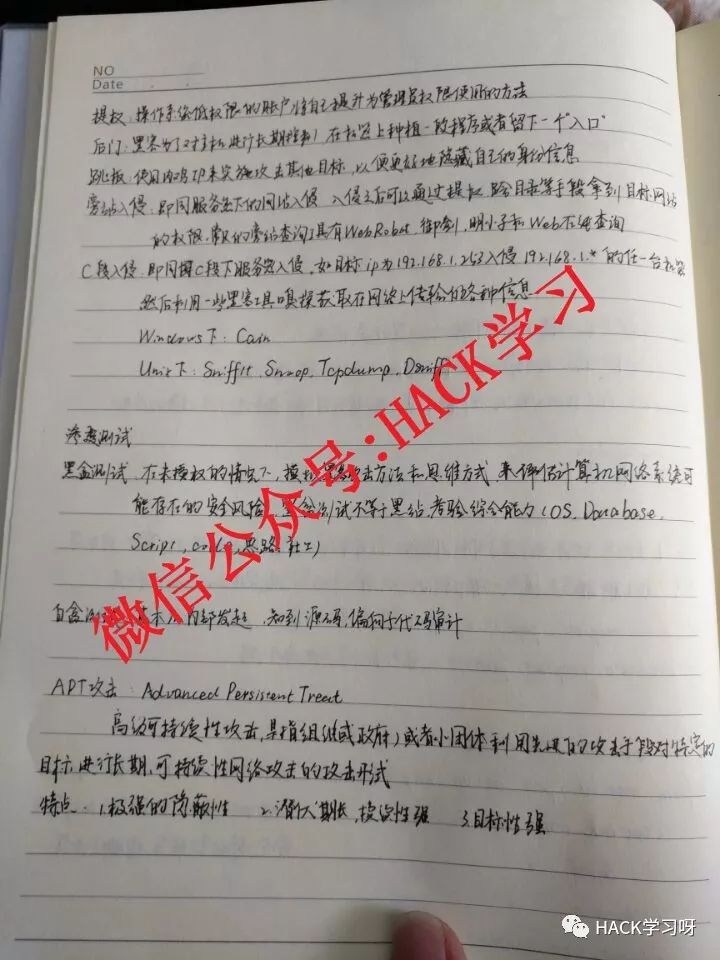 NO
Date
提权：操作系统低权限的账户将自己提升为管理员权限使用的方法
后门：黑客为了对主机进行长期控制，在机器上种植一段程序或者留下一个"入口"
跳板：使用肉鸡IP来实施攻击其他目标，以便更好地隐藏自己的身份信息
旁站入侵：即同服务器下的网站入侵，入侵之后可以通过提权跨目录等手段拿到目标网站
的权限.常见的旁站查询工具有WebRobot、御剑，明小子和Web在线查询
C段入侵：即同网C段下服务器入侵.如目标ip为192.168.1.253入侵192.168.1.*的任一台机器
然后利用一些黑客工具嗅探获取在网络上传输的各种信息.
Windows下：Cain
Unix下：Sniffit、Snoop、Tcpdump、Dsniff
渗透测试
黑盒测试 在未授权的情况下，模拟黑客攻击方法和思维方式 来评估计算机网络系统可
能存在的安全风险，黑盒测试不等于黑站.考验综合能力（OS、Database、
Script、code、思路、社工）
白盒 内部发起，知到源码，偏向于代码审计
APT攻击：Advanced Persistent Treat
高级可持续性攻击，是指组织(或政府）或者小团体利用先进的攻击手段对特定的
目标进行长期，可持续性网络攻击的攻击形式
特点：1.极强的隐蔽性 2.潜伏期长，持续性强 3.目标性强
微信公众号:HACK学习
HACK学习呀